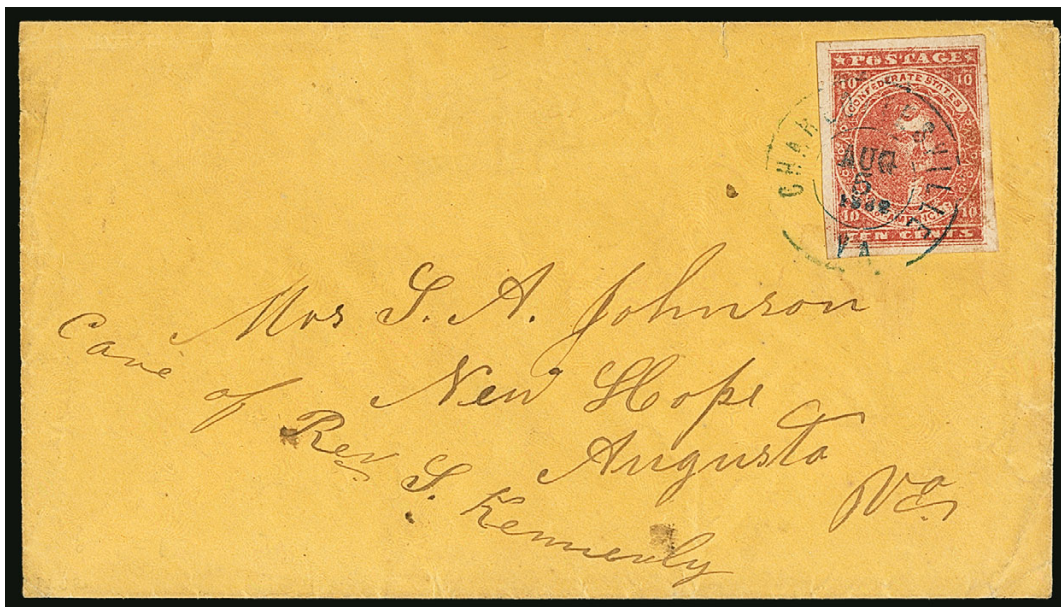 POSTAGE
10 10
CONFEDERATE STATES
OF AMERICA
10 10
TEN CENTS
CHARLOTTESVILLE
AUG
5
1862
VA.
Mrs S. A. Johnson
New Hope
Augusta
Va
Care of Rev S. Kennerly